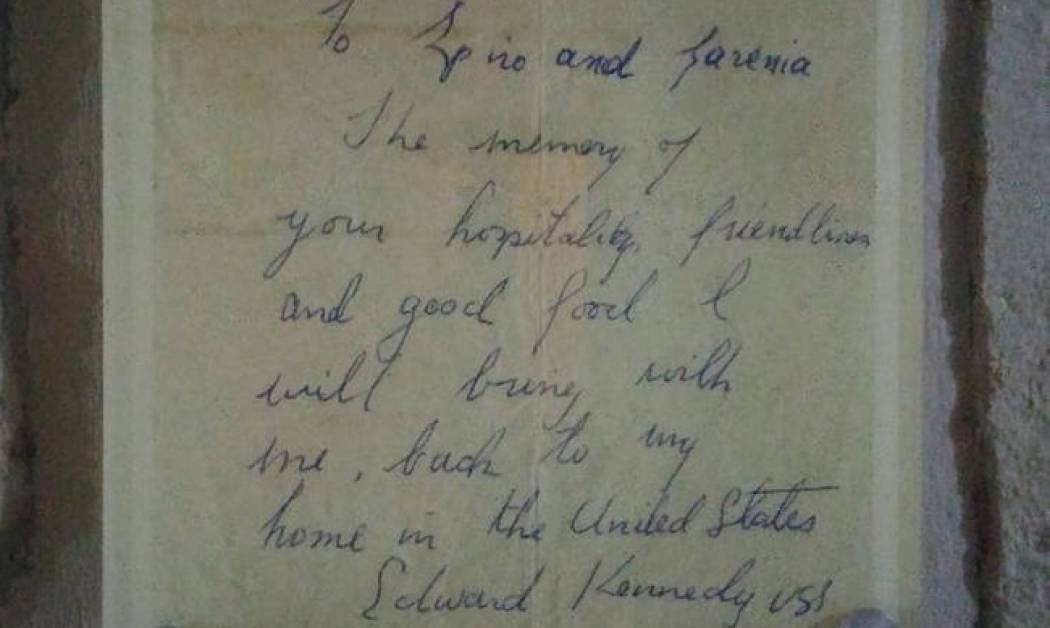 To Spiro and
The memory of
your hospitality, friendliness
and good food I
will bring with
me, back to my
home in the United States
Edward Kennedy USS